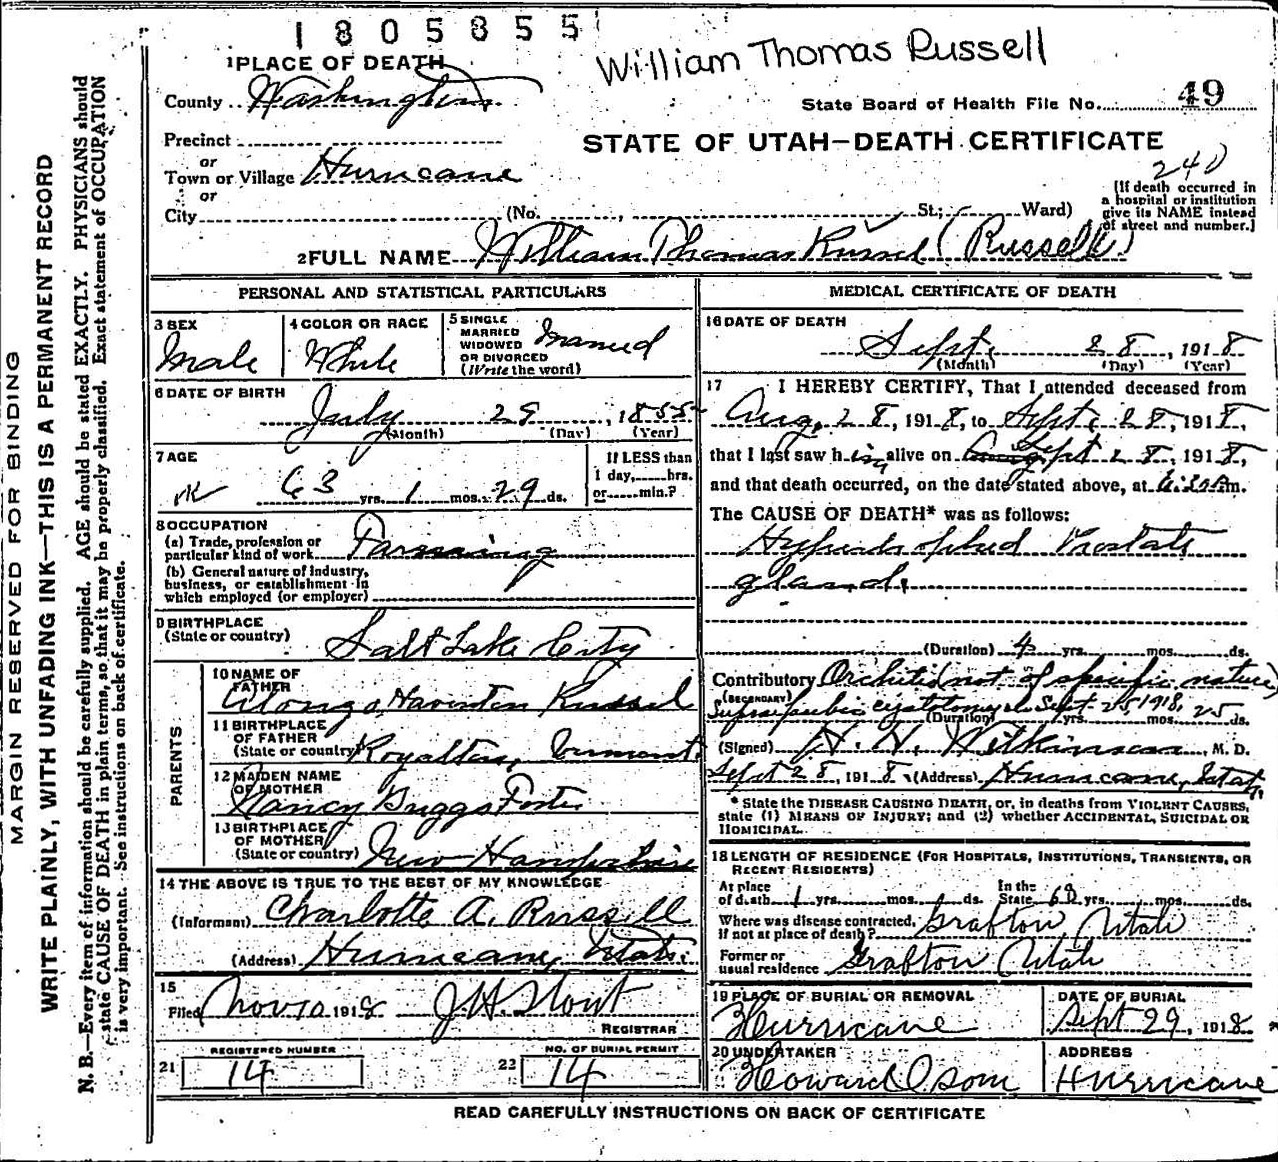 1805855
William Thomas Russell
1 PLACE OF DEATH
County Washington
State Board of Health File No. 49
Precinct
STATE OF UTAH—DEATH CERTIFICATE
or
240
Town or Village Hurricane
or
City (No. , St.; Ward)
(If death occurred in
a hospital or institution
give its NAME instead
of street and number.)
2 FULL NAME William Thomas Russel (Russell)
PERSONAL AND STATISTICAL PARTICULARS
3 SEX
Male
4 COLOR OR RACE
White
5 SINGLE
MARRIED
WIDOWED
OR DIVORCED
(Write the word)
Married
6 DATE OF BIRTH
July 29, 1855
(Month) (Day) (Year)
7 AGE
63 yrs. 1 mos. 29 ds.
If LESS than
1 day, hrs.
or min.?
8 OCCUPATION
(a) Trade, profession or
particular kind of work Farming
(b) General nature of industry,
business, or establishment in
which employed (or employer)
9 BIRTHPLACE
(State or country)
Salt Lake City
PARENTS
10 NAME OF
FATHER
Alonzo Haventon Russel
11 BIRTHPLACE
OF FATHER
(State or country) Royalton, Vermont
12 MAIDEN NAME
OF MOTHER
Nancy Briggs Foster
13 BIRTHPLACE
OF MOTHER
(State or country) New Hampshire
14 THE ABOVE IS TRUE TO THE BEST OF MY KNOWLEDGE
(Informant) Charlotte A. Russell
(Address) Hurricane, Utah.
15
Filed Nov 10 1918 J. H. Stout
REGISTRAR
21 REGISTERED NUMBER
14
22 NO. OF BURIAL PERMIT
14
MEDICAL CERTIFICATE OF DEATH
16 DATE OF DEATH
Sept. 28, 1918
(Month) (Day) (Year)
17 I HEREBY CERTIFY, That I attended deceased from
Aug. 28, 1918, to Sept. 28, 1918,
that I last saw him alive on Sept 28, 1918,
and that death occurred, on the date stated above, at m.
The CAUSE OF DEATH* was as follows:
Hypertrophied Prostate
gland.
(Duration) 4 yrs. mos. ds.
Contributory Orchitis not of specific nature
(SECONDARY)
Supra pubic cystotomy Sept. 25, 1918.
(Duration) yrs. mos. 25 ds.
(Signed) H. H. Wilkinson, M. D.
Sept 28, 1918 (Address) Hurricane, Utah.
* State the DISEASE CAUSING DEATH, or, in deaths from VIOLENT CAUSES,
state (1) MEANS OF INJURY; and (2) whether ACCIDENTAL, SUICIDAL OR
HOMICIDAL.
18 LENGTH OF RESIDENCE (FOR HOSPITALS, INSTITUTIONS, TRANSIENTS, OR
RECENT RESIDENTS)
At place
of death 1 yrs. mos. ds. In the
State 63 yrs. mos. ds.
Where was disease contracted,
if not at place of death? Grafton Utah
Former or
usual residence Grafton Utah
19 PLACE OF BURIAL OR REMOVAL
Hurricane
DATE OF BURIAL
Sept 29, 1918
20 UNDERTAKER
Howard Isom
ADDRESS
Hurricane
READ CAREFULLY INSTRUCTIONS ON BACK OF CERTIFICATE
MARGIN RESERVED FOR BINDING
WRITE PLAINLY, WITH UNFADING INK—THIS IS A PERMANENT RECORD
N. B.—Every item of information should be carefully supplied. AGE should be stated EXACTLY. PHYSICIANS should
state CAUSE OF DEATH in plain terms, so that it may be properly classified. Exact statement of OCCUPATION
is very important. See instructions on back of certificate.